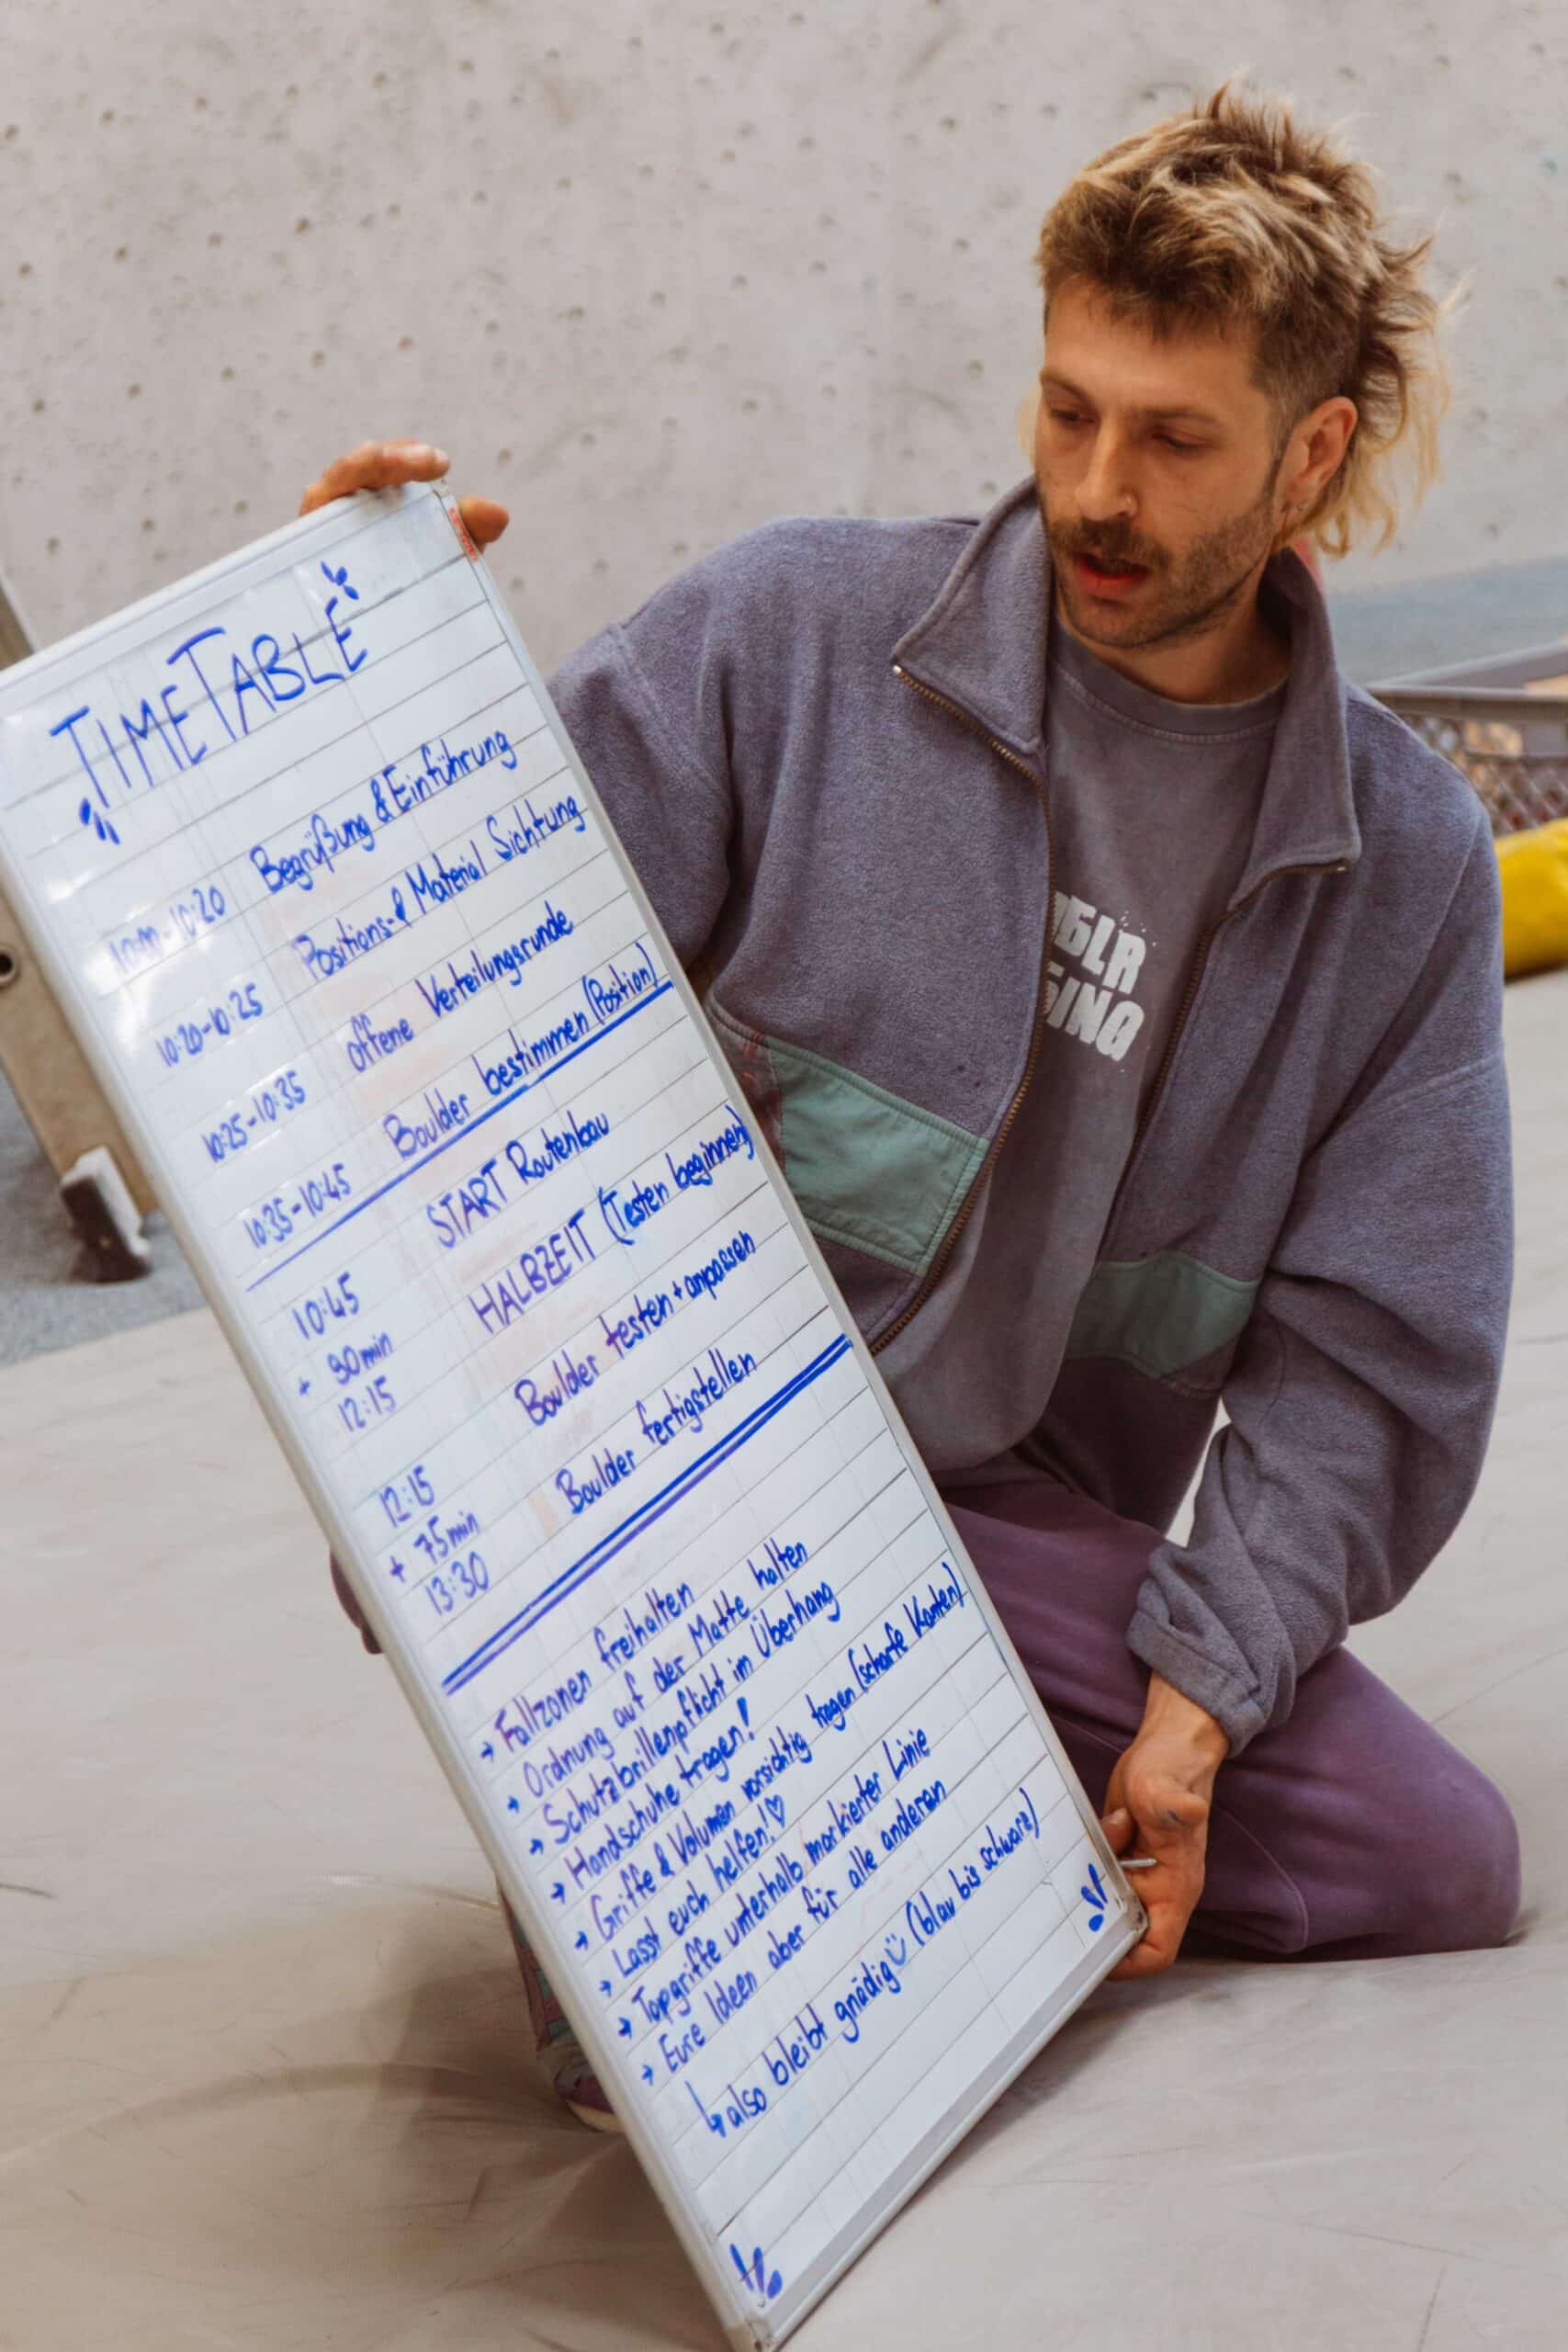 TIMETABLE
10:00-10:20 Begrüßung & Einführung
10:20-10:25 Positions- & Material Sichtung
10:25-10:35 offene Verteilungsrunde
10:35-10:45 Boulder bestimmen (Position)
10:45 START Routenbau
+ 90min
12:15 HALBZEIT (Testen beginnen)
12:15 Boulder testen + anpassen
+ 75min
13:30 Boulder fertigstellen
→ Fallzonen freihalten
→ Ordnung auf der Matte halten
→ Schutzbrillenpflicht im Überhang
→ Handschuhe tragen!
→ Griffe & Volumen vorsichtig tragen (scharfe Kanten)
→ Lasst euch helfen! ♡
→ Topgriffe unterhalb markierter Linie
→ Eure Ideen aber für alle anderen
↳ also bleibt gnädig (blau bis schwarz)